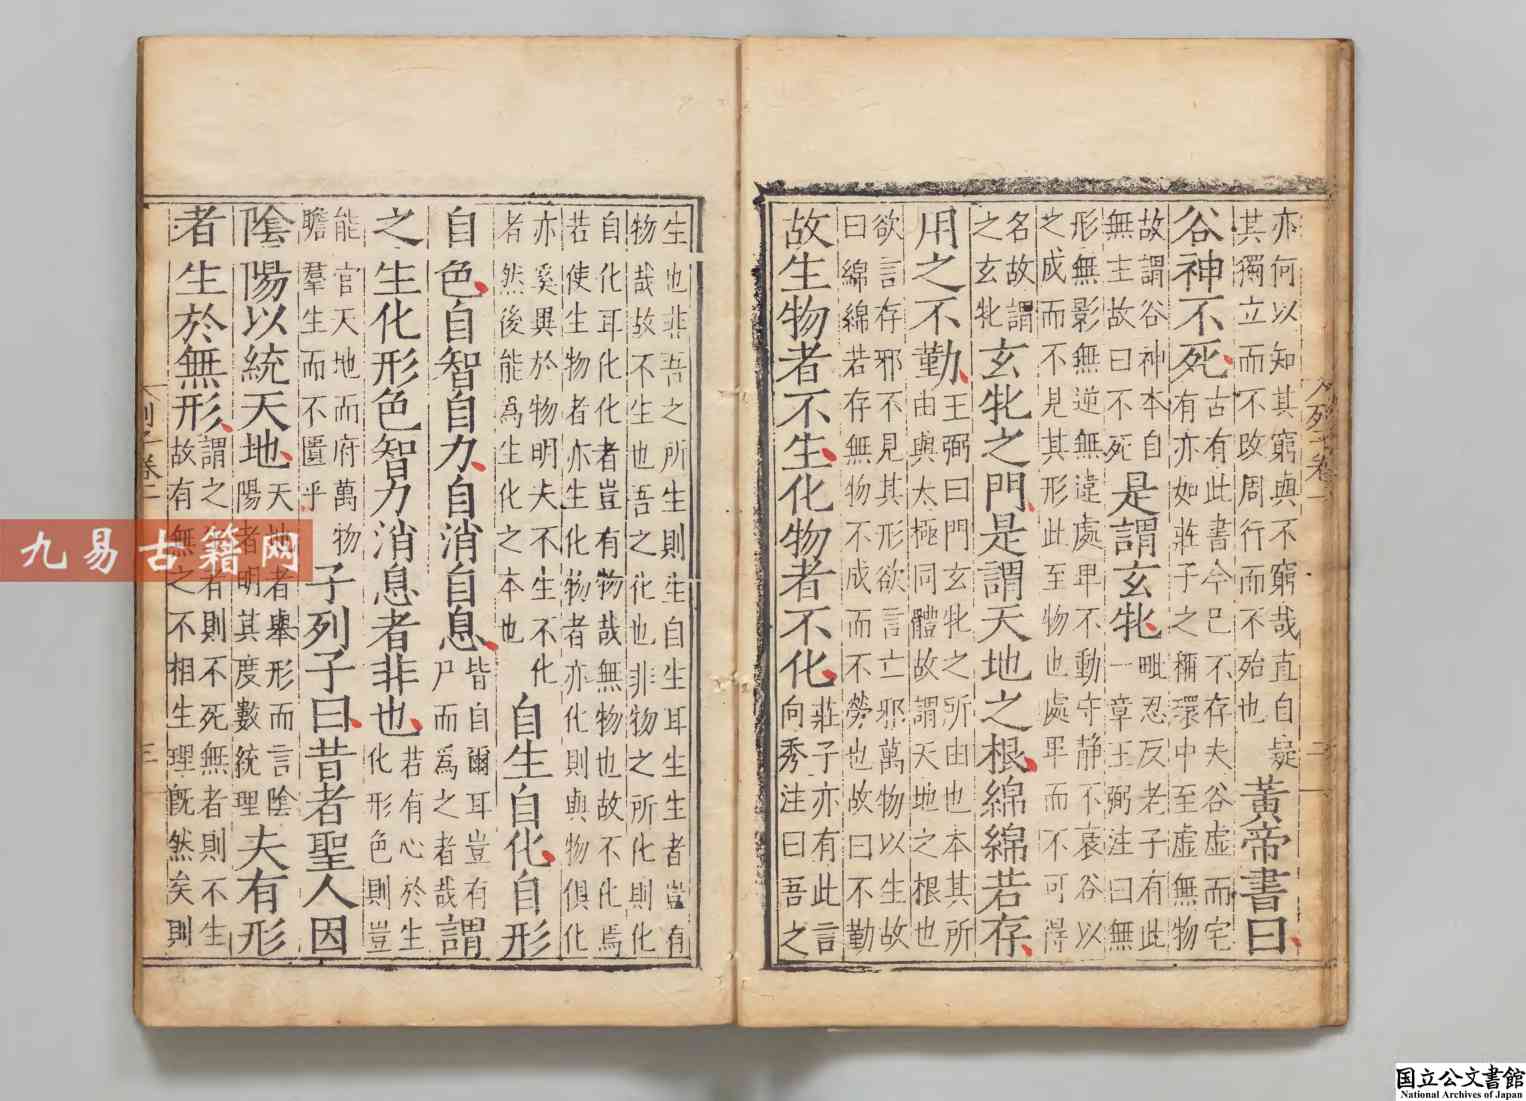 亦何以知其窮與不窮哉直自疑
其獨立而不改周行而不殆也
黃帝書曰
谷神不死
古有此書今已不存夫谷虛而宅
有亦如莊子之稱環中至虛無物
故謂谷神本自
無主故曰不死
是謂玄牝
毗忍反老子有此
一章王弼注曰無
形無影無逆無違處卑不動守靜不衰谷以
之成而不見其形此至物也處卑而不可得
名故謂
之玄牝
玄牝之門是謂天地之根綿綿若存
用之不勤
王弼曰門玄牝之所由也本其所
由與太極同體故謂天地之根也
欲言存邪不見其形欲言亡邪萬物以生故
曰綿綿若存無物不成而不勞也故曰不勤
故生物者不生化物者不化
莊子亦有此言
向秀注曰吾之
生也非吾之所生則生自生耳生生者豈有
物哉故不生也吾之化也非物之所化則化
自化耳化化者豈有物哉無物也故不化焉
若使生物者亦生化物者亦化則與物俱化
亦奚異於物明夫不生不化
者然後能為生化之本也
自生自化自形
自色自智自力自消自息
皆自爾耳豈有
尸而為之者哉
謂
之生化形色智力消息者非也
若有心於生
化形色則豈
能官天地而府萬物
贍羣生而不匱乎
子列子曰昔者聖人因
陰陽以統天地
天地者舉形而言陰
陽者明其度數統理
夫有形
者生於無形
謂之者則不死無者則不生
故有無之不相生理既然矣則
九易古籍网
国立公文書館
National Archives of Japan